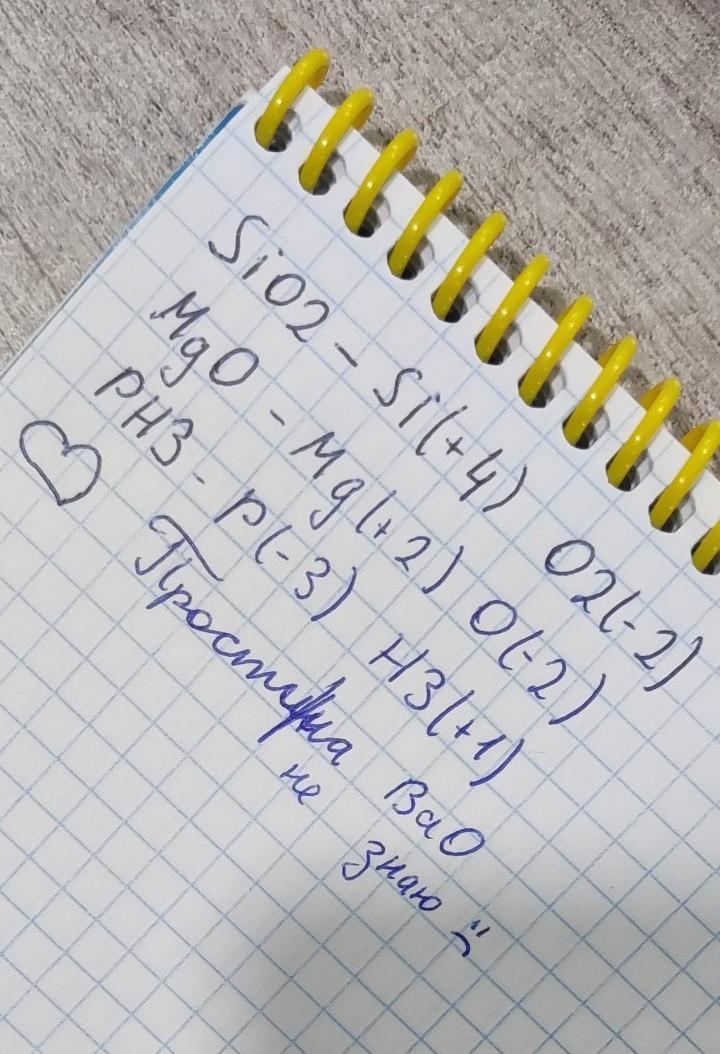 SiO2 - Si(+4) O2(-2)
MgO - Mg(+2) O(-2)
PH3 - P(-3) H3(+1)
Прости на BaO
не знаю